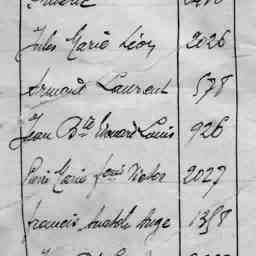 Jules Marie Léon 2026
Armand Laurent 578
Jean Bte Edouard Louis 926
Pierre Marie Victor 2027
Francis Anatole Ange 1358